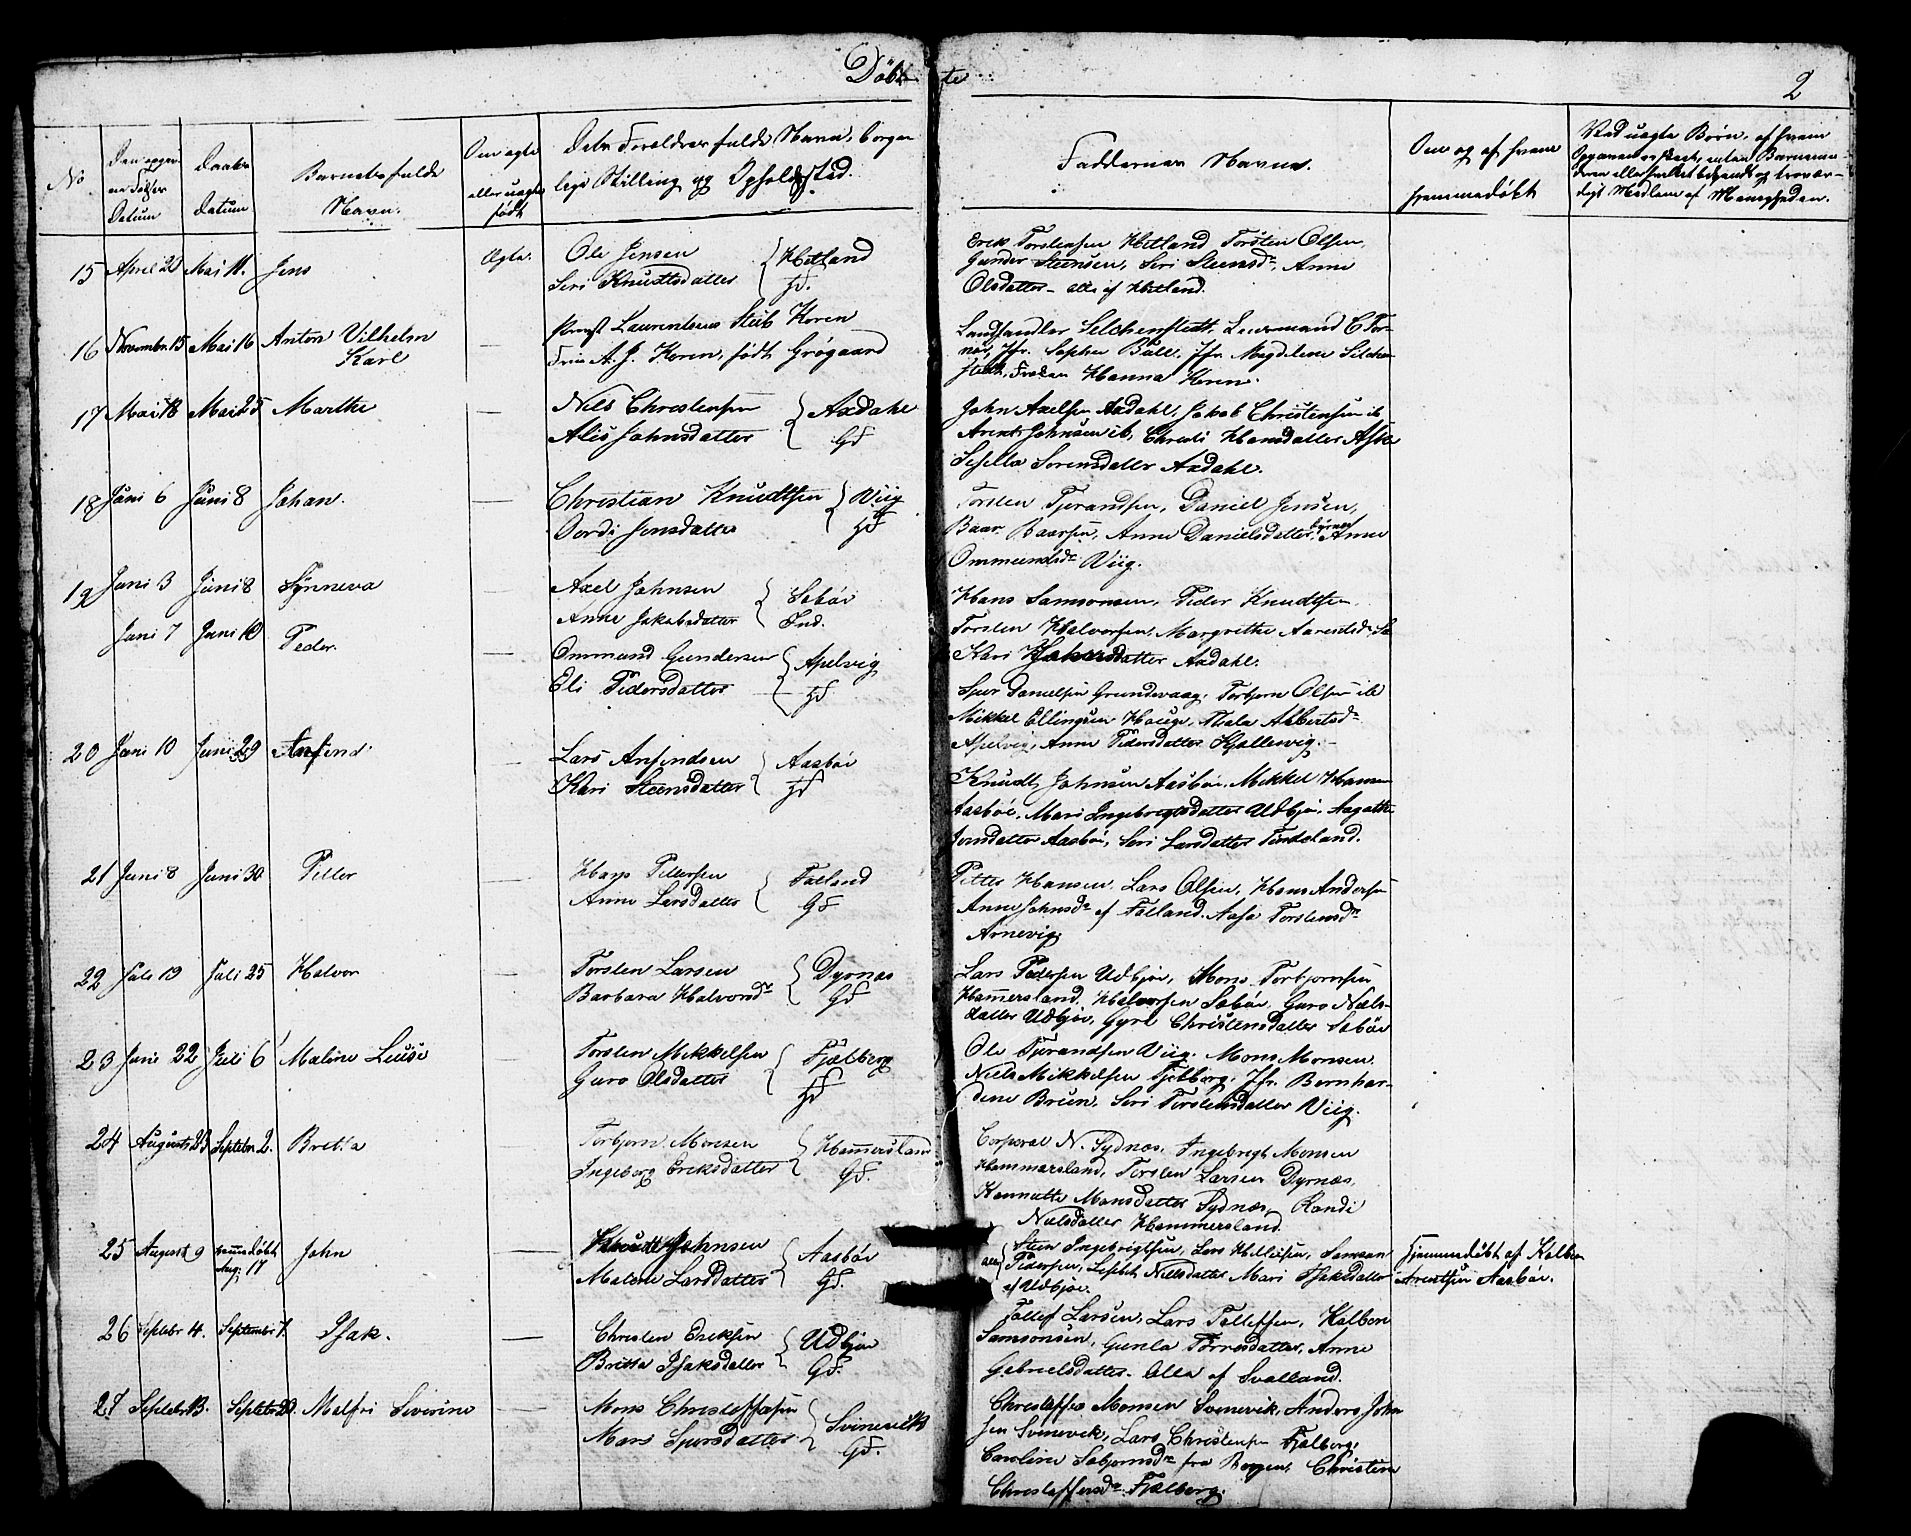 Döbte
2
No
Den opgivne Födsels Datum
Daabs Datum
Barnets fulde Navn.
Om ægte eller uægte født
Dets Forældres fulde Navn, borgerlige Stilling og Opholdssted.
Faddernes Navne.
Om og af hvem hjemmedöbt
Ved uægte Börn, af hvem
15 April 20 Mai 11. Jens Ægte.
Ole Jensen
Siri Knudtsdatter
Hetland
Gd.
Erik Torstensen Hetland, Torsten Olsen,
Gunder Steensen, Siri Steensdr, Anne
Olsdatter - alle af Hetland.
16 Novembr. 15 Mai 16 Anton Vilhelm
Karl
Provst Laurentius Stub Koren
Frue A. J. Koren, födt Grögaard
Landhandler Selchenstedt, Leermand C Tor-
nöe, Jfr. Sophie Bull, Jfr. Magdelene Silchen
stedt, Fröken Hanna Koren.
17 Mai 18 Mai 25 Marthe
Nils Christensen
Alis Johnsdatter
Axdahl
Gd
John Axelsen Axdahl, Jakob Christensen ib
Arent Johnsen ib, Christi Hansdatter Aske
Sesella Sorensdatter Axdahl.
18 Juni 6 Juni 8 Johan.
Christian Knudtsen
Gordi Jensdatter
Viig
Gd
Torsten Tjerandsen, Daniel Jensen,
Baar Baarsen, Anne Danielsdatter, Anne
Ommundsdr Viig.
19 Juni 3 Juni 8 Synneva
Axel Johnsen
Anne Jakobsdatter
Sæböe
Ind.
Hans Samsonsen, Peder Knudtsen
Torsten Halvorsen, Margrethe Aarentsdr Sæ
Kari Johnsdatter Axdahl.
Juni 7 Juni 10 Peder.
Ommund Gundersen
Eli Pedersdatter
Apelvig
Gd
Sjur Danielsen Grundevaag, Torbjorn Olsen ib
Mikkel Ellingsen Hauge, Thala Albertsdr
Apelvig, Anne Pedersdatter Kjallevig. -
20 Juni 10 Juni 29 Anfind.
Lars Anfindsen
Kari Steensdatter
Aasböe
Gd
Knudt Johnsen Aasböe, Mikkel Hansen
Aasböe, Mari Ingebregtsdatter Udbjöe, Aagathe
Jonsdatter Aasböe, Siri Larsdatter Tindeland.
21 Juni 8 Juni 30 Pitter
Hans Pittersen
Anne Larsdatter
Fatland
Gd
Pitter Hansen, Lars Olsen, Hans Andersen
Anne Johnsdr af Fatland. Aasa Torstensdr
Arnevig.
22 Juli 19 Juli 25 Halvor
Torsten Larsen
Barbara Halvorsdr
Dyrnæs
Gd
Lars Pedersen Udbjöe, Mons Torbjornsen
Hammersland, Halvorsen Sæböe, Guro Niels-
datter Udbjöe, Gyri Christensdatter Sæböe
23 Juni 22 Juli 6 Maline Luise
Torsten Mikkelsen
Guro Olsdatter
Fjelberg
Gd
Ole Tjerandsen Viig. Mons Monsen,
Niels Mikkelsen Fjelberg, Jfr. Bernhar-
dine Bruun, Siri Torstensdatter Viig.
24 August 23 Septebr. 2. Britta
Torbjorn Monsen
Ingeborg Eriksdatter
Hammersland
Gd.
Corporal N. Sydnæs, Ingebregt Monsen
Hammersland, Torsten Larsen Dyrnæs,
Hennutte Monsdatter Sydnæs, Randi
Nielsdatter Hammersland.
25 August 9 hjemmedöbt John
Aug. 17
Knudt Johnsen
Malene Larsdatter
Aasböe
Gd.
Steen Ingebrigtsen, Lars Hellesen, Samson
Pedersen, Lisebet Nielsdatter, Mari Isaksdatter
alle af Udbjöe.
Hjemmedöbt af Kolben
Arentsen Aasböe.
26 Septebr 4. Septembr 7. Isak.
Christen Eriksen
Britta Isaksdatter
Udbjöe
Gd.
Tollef Larsen, Lars Tollefsen, Kolben
Samsonsen, Gunla Törresdatter, Anne
Gabrielsdatter. Alle af Svalland.
27 Septebr 13. Septebr 20. Malfri Severine
Mons Christoffersen
Mari Sjursdatter
Svinevik
Gd.
Christoffer Monsen Svinevik, Anders John
sen Svinevik, Lars Christensen Fjelberg,
Caroline Sæbjornsdr fra Bergen, Christine
Christoffersdr Fjælberg.